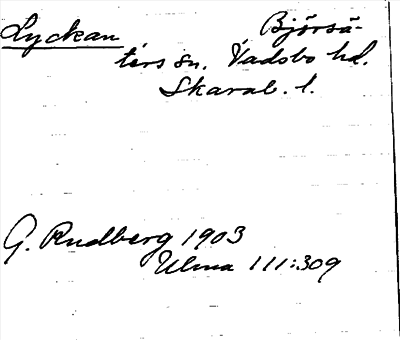 Lyckan Björsä-
ters sn. Vadsbo hd.
Skarab. l.
G. Rudberg 1903
Ulma 111:309